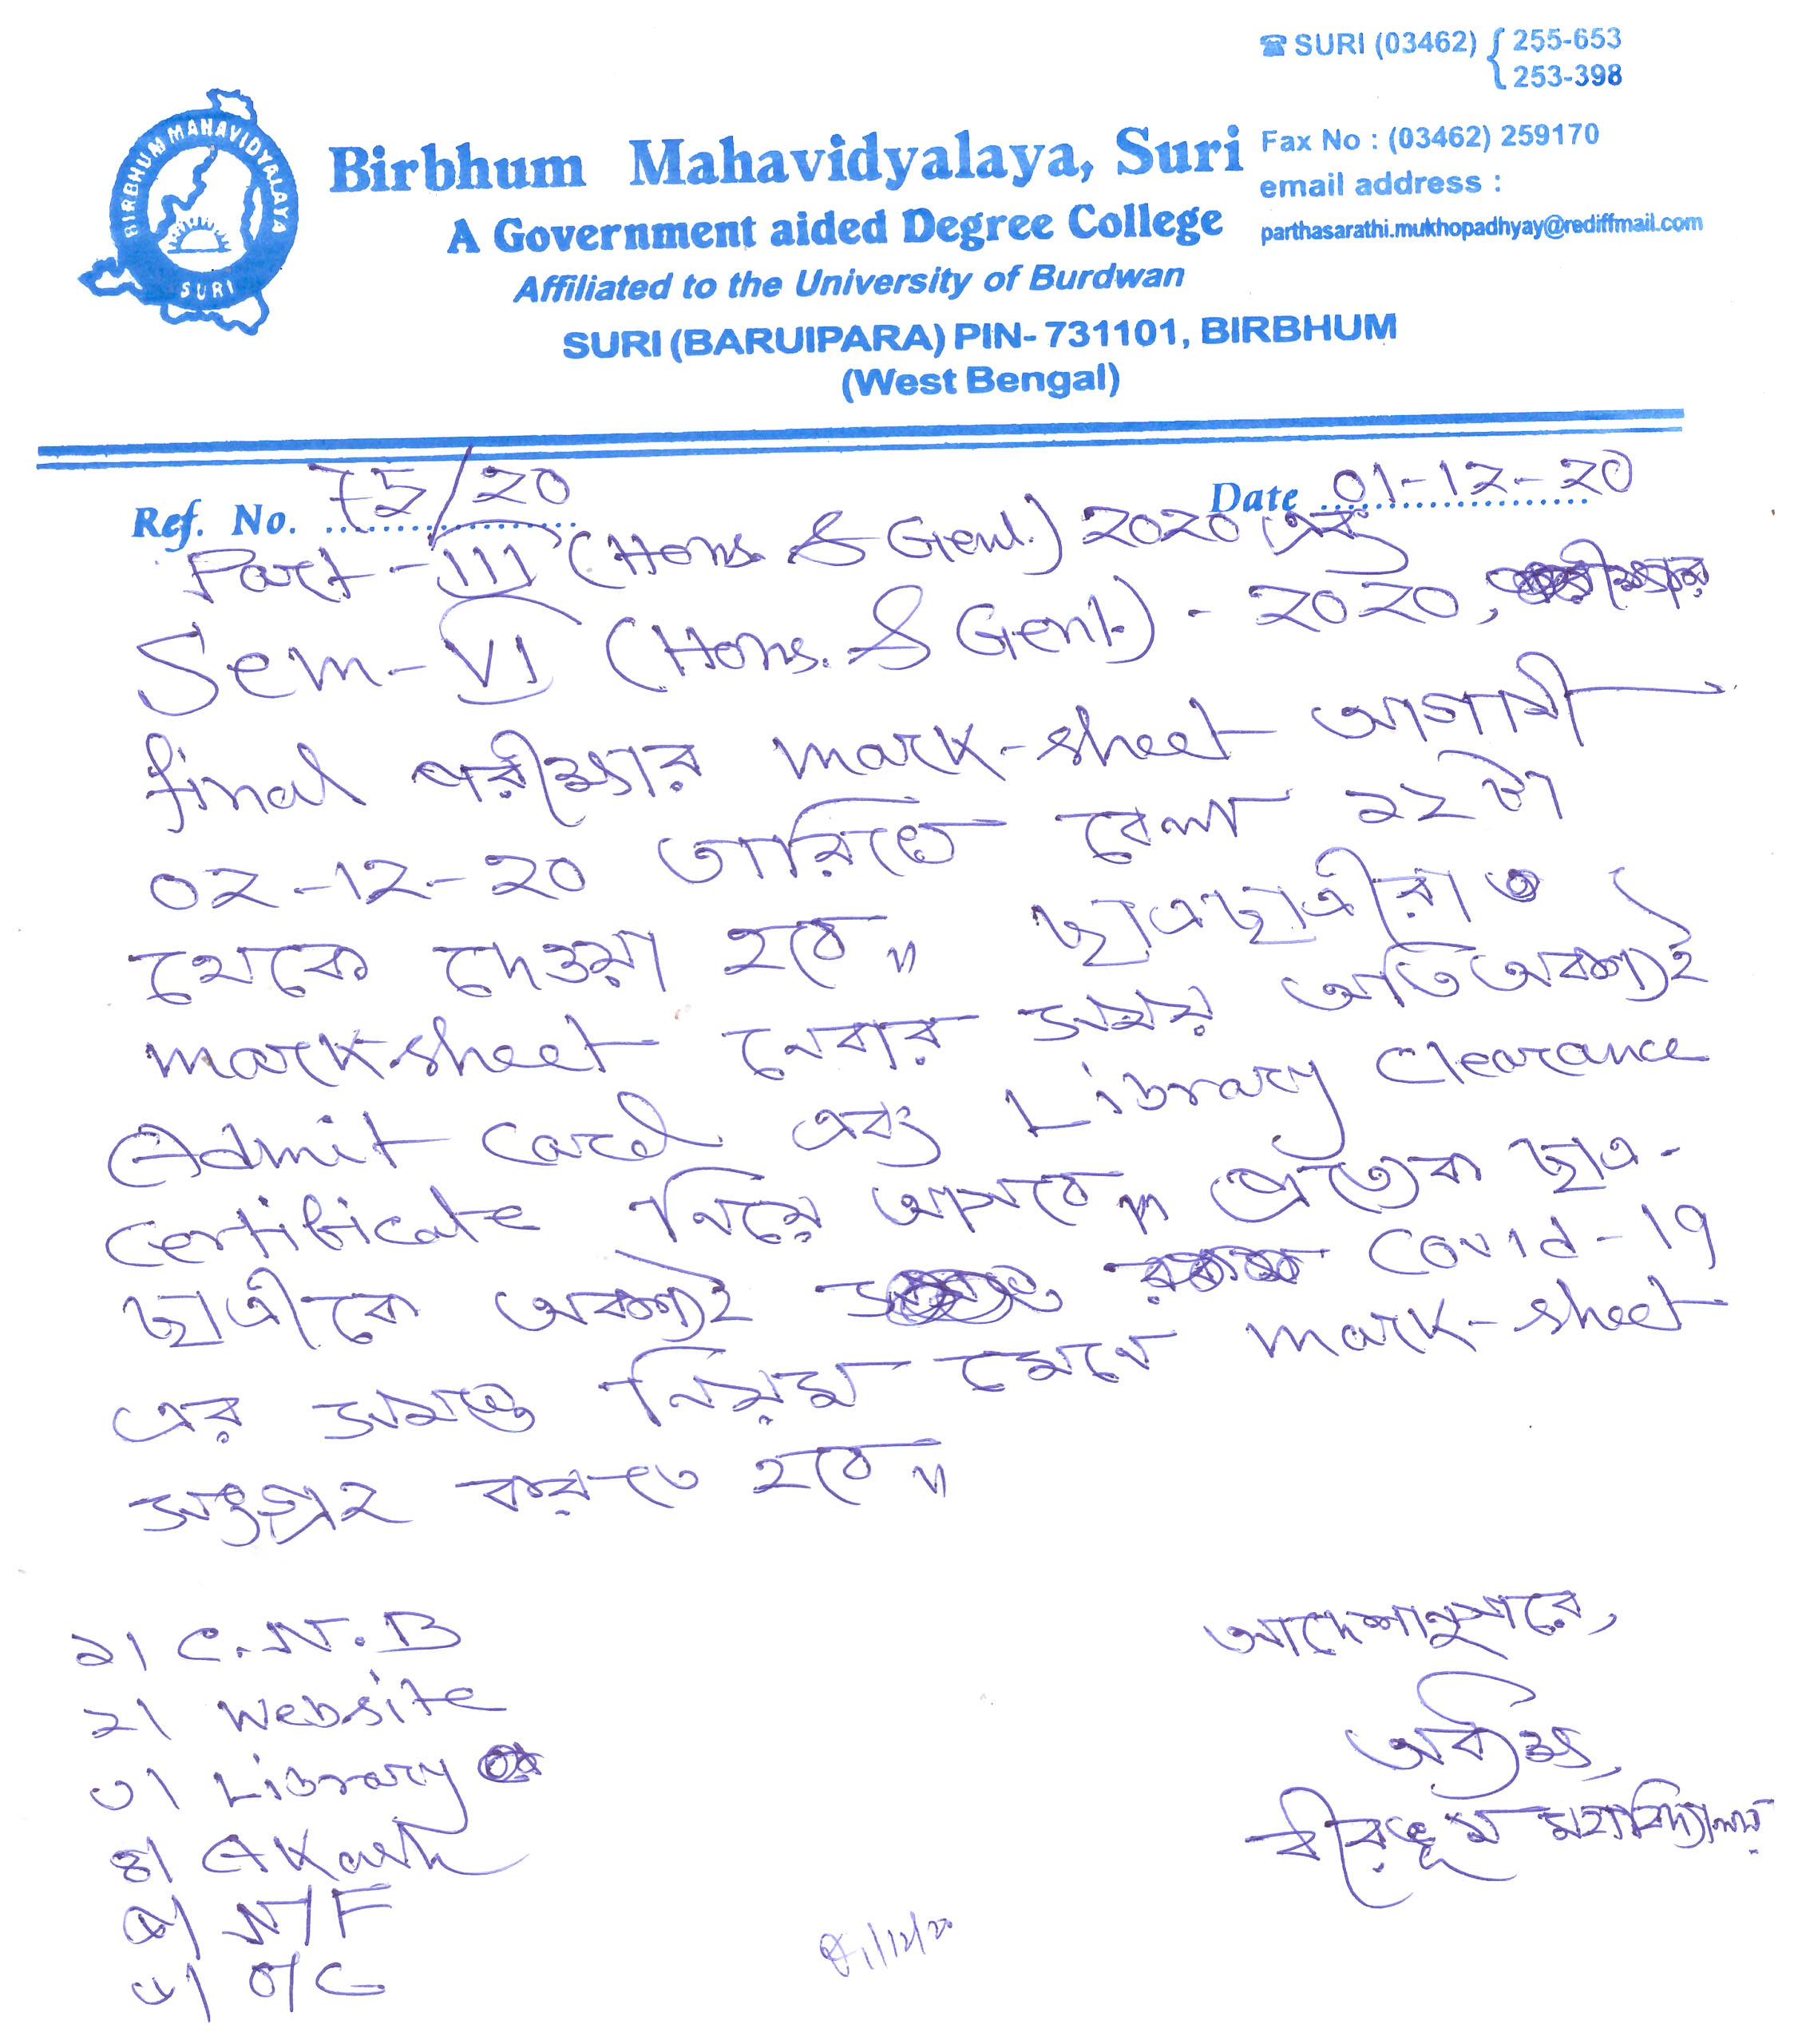 ☎ SURI (03462) { 255-653
253-398
BIRBHUM MAHAVIDYALAYA
SURI
Birbhum Mahavidyalaya, Suri
Fax No : (03462) 259170
email address :
parthasarathi.mukhopadhyay@rediffmail.com
A Government aided Degree College
Affiliated to the University of Burdwan
SURI (BARUIPARA) PIN- 731101, BIRBHUM
(West Bengal)
Ref. No. 75/20 Date 01-12-20
Part-III (Hons. & Genl.) 2020 এবং
Sem-VI (Hons. & Genl.) - 2020,
final পরীক্ষার mark-sheet আগামী
02-12-20 তারিখে বেলা ১২ টা
থেকে দেওয়া হবে॥ ছাত্রছাত্রীরা
mark-sheet নেবার সময় অতিঅবশ্যই
Admit Card এবং Library Clearance
Certificate নিয়ে আসবে॥ প্রত্যেক ছাত্র-
ছাত্রীকে অবশ্যই Covid-19
এর সমস্ত নিয়ম মেনে mark-sheet
সংগ্রহ করতে হবে॥
১। C.N.B
২। Website
৩। Library
৪। Akash
৫। N/F
৬। O/C
আদেশানুসারে,
অধ্যক্ষ,
বীরভূম মহাবিদ্যালয়
1/12/20